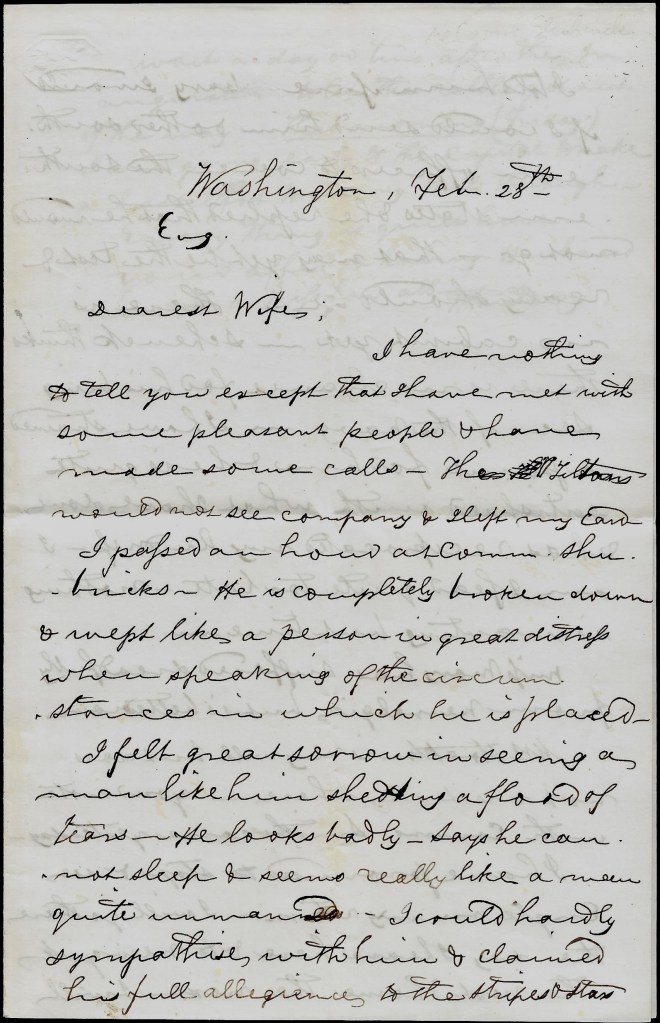 Washington, Feb. 28th
Evg.
Dearest Wife;
I have nothing
to tell you except that I have met with
some pleasant people & have
made some calls – The Tiltons
would not see company & I left my card
I passed an hour at Comm. Shu.
-bricks – He is completely broken down
& wept like a person in great distress
when speaking of the circum
-stances in which he is placed –
I felt great sorrow in seeing a
man like him shedding a flood of
tears – He looks badly – says he can.
-not sleep & seems really like a man
quite unmanned – I could hardly
sympathise with him & claimed
his full allegience to the stripes & stars